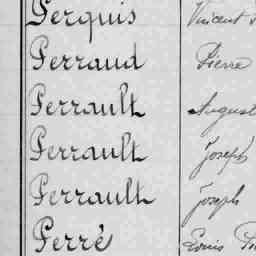 Perquis Vincent
Perraud Pierre
Perrault August
Perrault Joseph
Perrault Joseph
Perré Louis